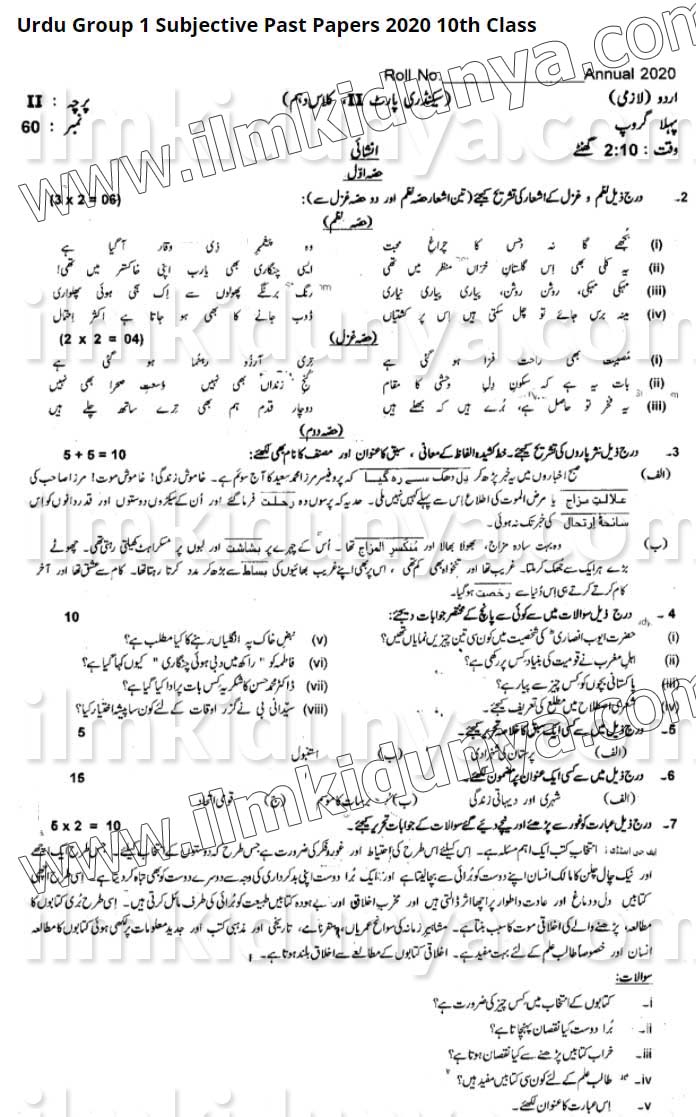 Urdu Group 1 Subjective Past Papers 2020 10th Class
Roll No Annual 2020
اردو (لازمی) (سیکنڈری پارٹ II، کلاس دہم) پرچہ : II
پہلا گروپ نمبر : 60
وقت : 2:10 گھنٹے انشائی
حصہ اوّل
2۔ درج ذیل نظم و غزل کے اشعار کی تشریح کیجئے (تین اشعار حصہ نظم اور دو حصہ غزل سے): (3 x 2 = 06)
(حصہ نظم)
(i) بجھے گا نہ جس کا چراغِ محبت وہ پیغمبرِ ذی وقار آگیا ہے
(ii) یہ کلی بھی اِس گلستانِ خزاں منظر میں تھی ایسی چنگاری بھی یارب اپنی خاکستر میں تھی!
(iii) مہکی مہکی، روشن روشن، پیاری پیاری نیاری رنگ برنگے پھولوں سے اِک بھی ہوئی پھلواری
(iv) مینہ برس جائے تو چل سکتی ہیں اِس پر کشتیاں ڈوب جانے کا بھی ہو جاتا ہے اکثر احتمال
(حصہ غزل) (2 x 2 = 04)
(i) مصیبت بھی راحت فزا ہو گئی ہے تری آرزو رہنما ہو گئی ہے
(ii) بات یہ ہے کہ سکونِ دلِ وحشی کا مقام کنجِ زنداں بھی نہیں وسعتِ صحرا بھی نہیں
(iii) یہ فخر تو حاصل ہے، بُرے ہیں کہ بھلے ہیں دوچار قدم ہم بھی ترے ساتھ چلے ہیں
(حصہ دوم)
3۔ درج ذیل نثرپاروں کی تشریح کیجئے۔ خط کشیدہ الفاظ کے معانی، سبق کا عنوان اور مصنف کا نام بھی لکھئے: 5 + 5 = 10
(الف) صبح اخباروں میں یہ خبر پڑھ کر دل دھک سے رہ گیا کہ پروفیسر مرزا محمد سعید کا آج سوئم ہے۔ خاموش زندگی! خاموش موت! مرزا صاحب کی
علالتِ مزاج یا مرض الموت کی اطلاع اِس سے پہلے کہیں نہیں ملی۔ حد یہ کہ پرسوں وہ رحلت فرما گئے اور اُن کے سیکڑوں دوستوں اور قدردانوں کو اس
سانحۂ ارتحال کی خبر تک نہ ہوئی۔
(ب) وہ بہت سادہ مزاج، بھولا بھالا اور منکسر المزاج تھا۔ اُس کے چہرے پر بشاشت اور لبوں پر مسکراہٹ کھیلتی رہتی تھی۔ چھوٹے
بڑے ہر ایک سے جھک کر ملتا۔ غریب تھا اور تنخواہ بھی کم تھی، اس پر بھی اپنے غریب بھائیوں کی بساط سے بڑھ کر مدد کرتا رہتا تھا۔ کام سے عشق تھا اور آخر
کام کرتے کرتے ہی اس دُنیا سے رخصت ہو گیا۔
4۔ درج ذیل سوالات میں سے کوئی سے پانچ کے مختصر جوابات دیجئے: 10
(i) حضرت ایوب انصاریؓ کی شخصیت میں کون سی تین چیزیں نمایاں تھیں؟ (v) نبضِ خاک پہ انگلیاں رہنے کا کیا مطلب ہے؟
(ii) اہلِ مغرب نے قومیت کی بنیاد کس پر رکھی ہے؟ (vi) فاطمہ کو "راکھ میں دبی ہوئی چنگاری" کیوں کہا گیا ہے؟
(iii) پاکستانی بچوں کو کس چیز سے پیار ہے؟ (vii) ڈاکٹر محمد حسن کا شکریہ کس بات پر ادا کیا گیا ہے؟
(iv) شعری اصطلاح میں مطلع کی تعریف کیجئے۔ (viii) سیّدانی بی نے گزر اوقات کے لئے کون سا پیشہ اختیار کیا؟
5۔ درج ذیل میں سے کسی ایک سبق کا خلاصہ تحریر کیجئے۔ 5
(الف) پرستان کی شہزادی (ب) استنبول
6۔ درج ذیل میں سے کسی ایک عنوان پر مضمون لکھئے۔ 15
(الف) شہری اور دیہاتی زندگی (ب) برسات کا موسم (ج) قومی اتحاد
7۔ درج ذیل عبارت کو غور سے پڑھئے اور نیچے دیئے گئے سوالات کے جوابات تحریر کیجئے۔ 5 x 2 = 10
انتخابِ کتب ایک اہم مسئلہ ہے۔ اس کیلئے اس طرح کی احتیاط اور غور و فکر کی ضرورت ہے جس طرح کہ دوستوں کے انتخاب کیلئے۔ جس طرح ایک اچھے
اور نیک چال چلن کا مالک انسان اپنے دوست کو برائی سے بچا لیتا ہے اور ایک بُرا دوست اپنی بدکرداری کی وجہ سے دوسرے دوست کو بھی تباہ کر دیتا ہے۔ اِسی طرح اچھی
کتابیں دل و دماغ اور عادت و اطوار پر اچھا اثر ڈالتی ہیں اور مخرب اخلاق اور بے ہودہ کتابیں طبیعت کو برائی کی طرف مائل کرتی ہیں۔ اِسی طرح بُری کتابوں کا
مطالعہ، پڑھنے والے کی اخلاقی موت کا سبب بنتا ہے۔ مشاہیرِ زمانہ کی سوانح عمریاں، سفرنامے، تاریخی اور مذہبی کتب اور جدید معلومات پر لکھی ہوئی کتابوں کا مطالعہ
انسان اور خصوصاً طالب علم کے لئے بہت مفید ہے۔ اخلاقی کتابوں کے مطالعے سے اخلاق بلند ہوتا ہے۔
سوالات:
i۔ کتابوں کے انتخاب میں کس چیز کی ضرورت ہے؟
ii۔ بُرا دوست کیا نقصان پہنچاتا ہے؟
iii۔ خراب کتابیں پڑھنے سے کیا نقصان ہوتا ہے؟
iv۔ طالب علم کے لئے کون سی کتابیں مفید ہیں؟
v۔ اِس عبارت کا عنوان لکھئے۔
www.ilmkidunya.com